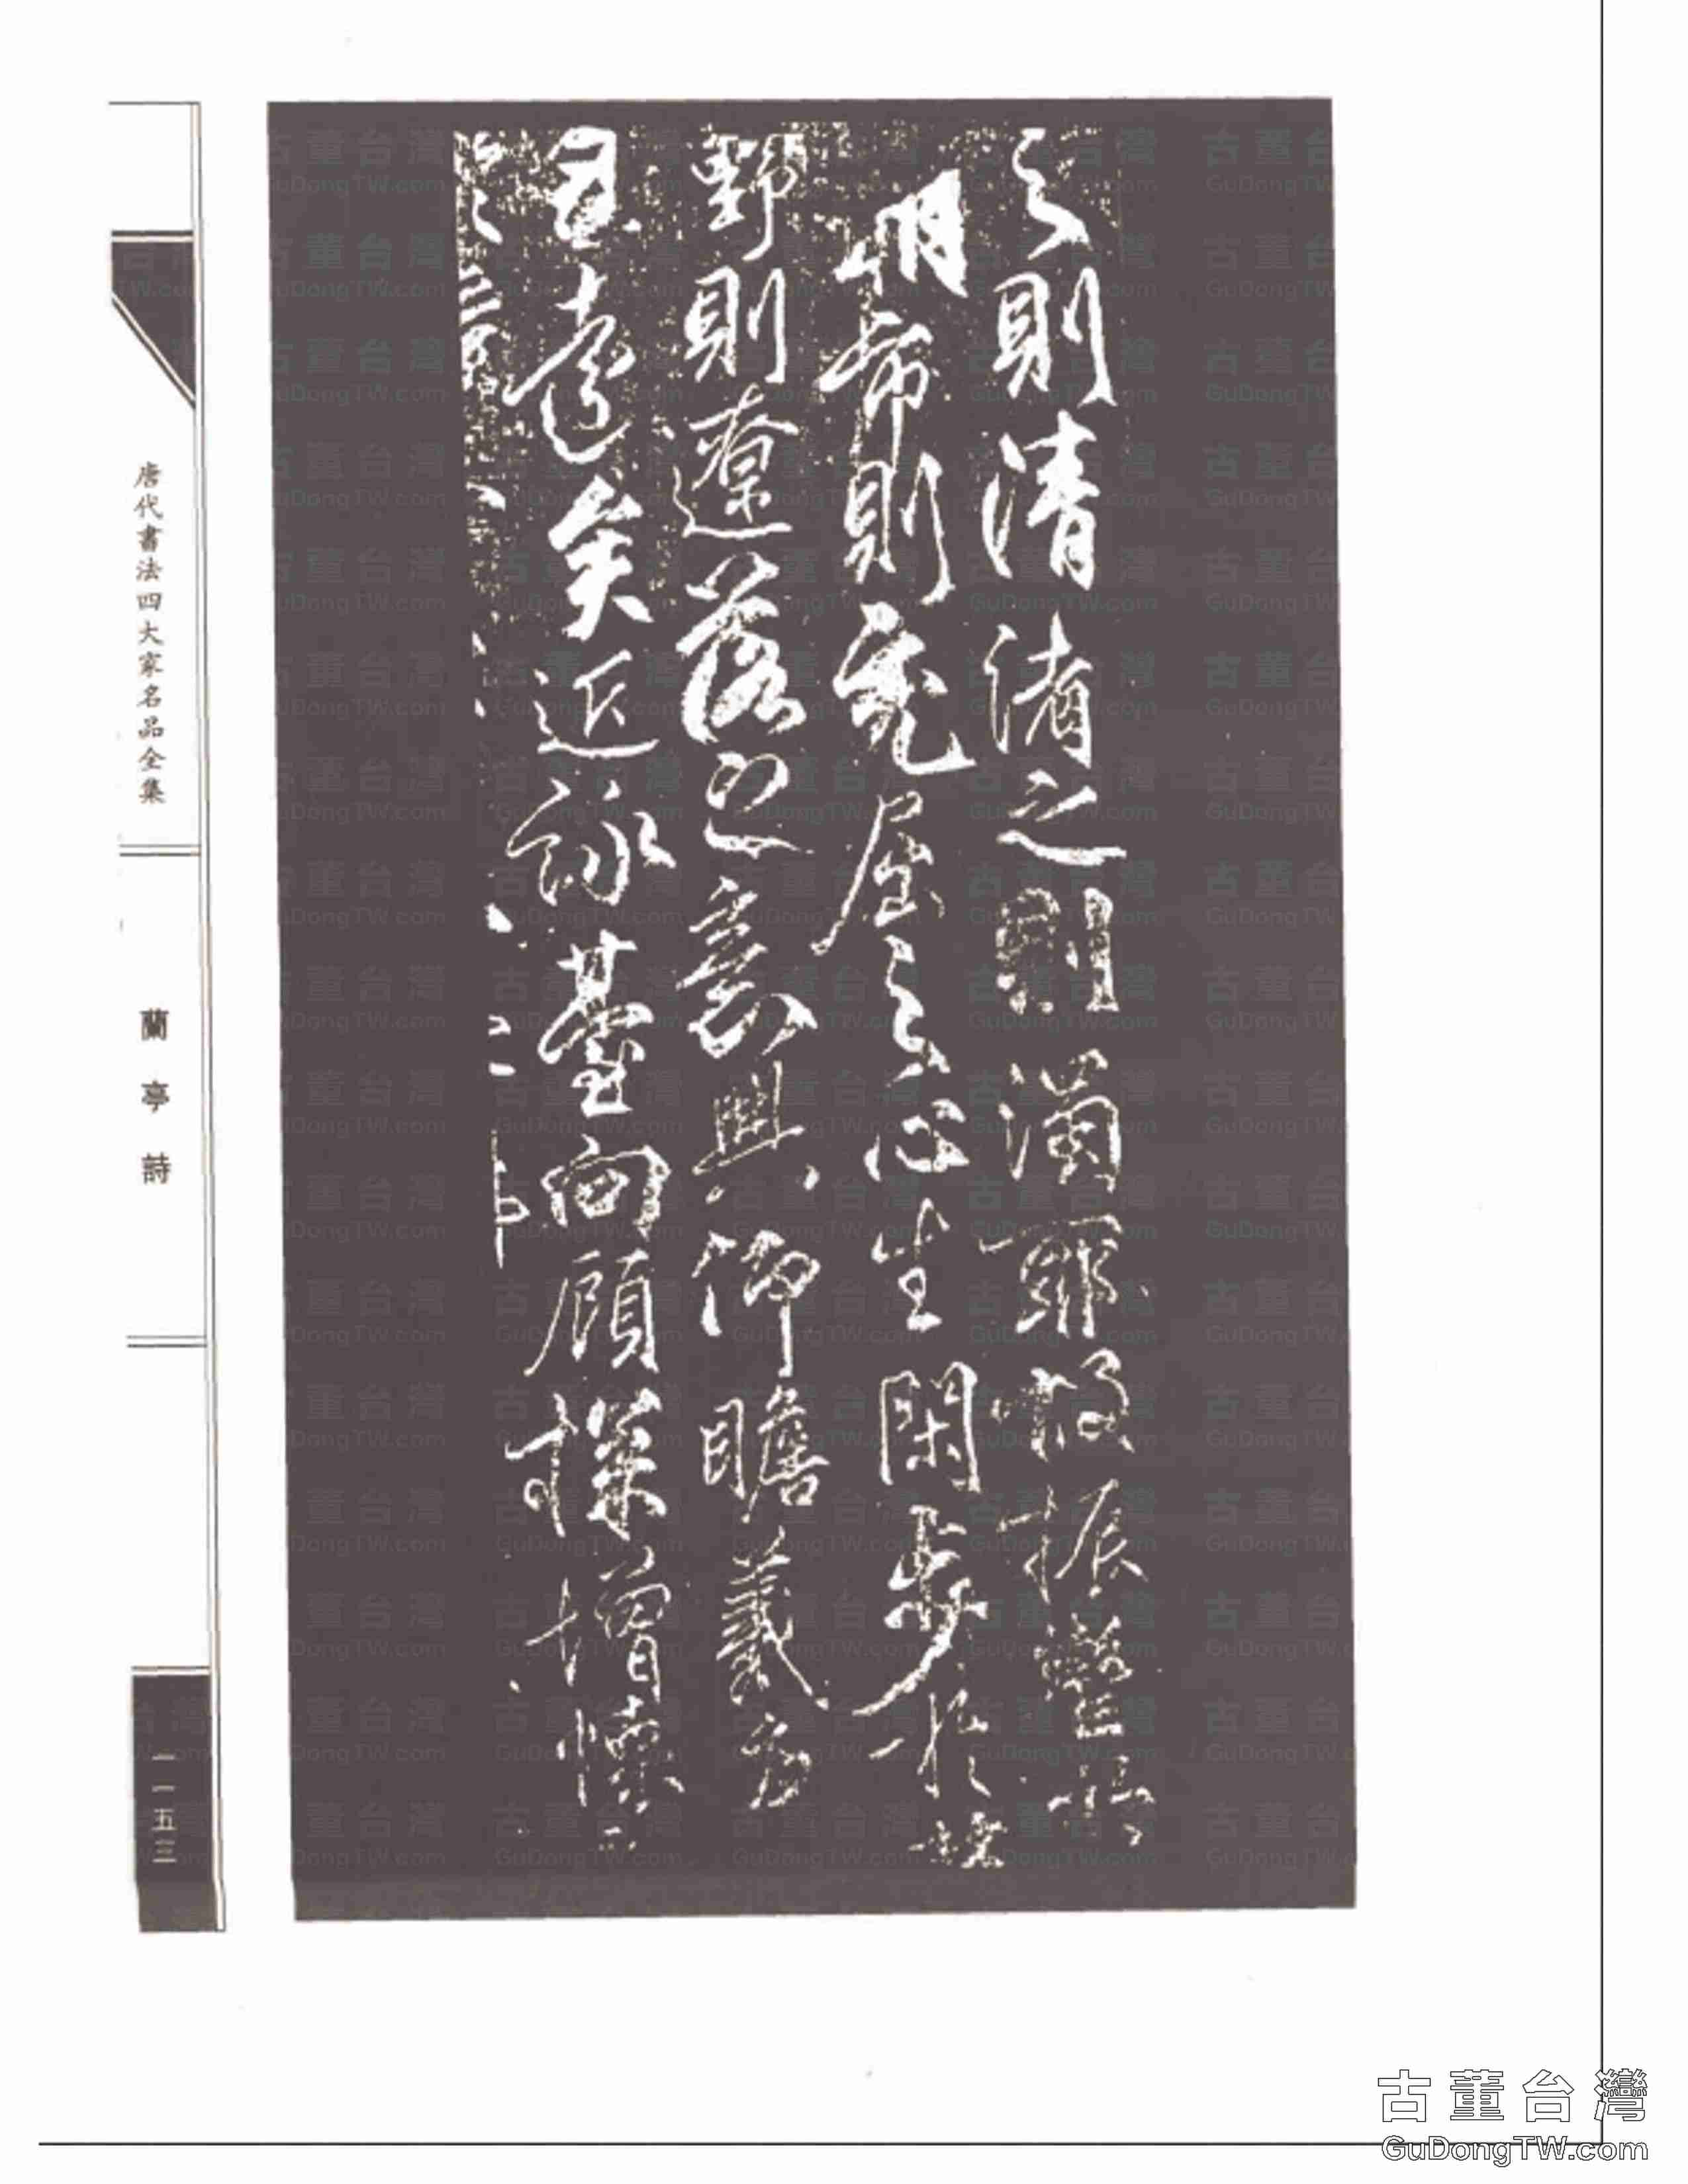 之則清淆之則濁耶故振轡於
朝市則充屈之心生閑步於林
野則遼落之意興仰瞻羲唐
邈已遠矣近詠臺閣顧探增懷
唐代書法四大家名品全集
蘭亭詩
一一五三
古董台灣
GuDongTW.com